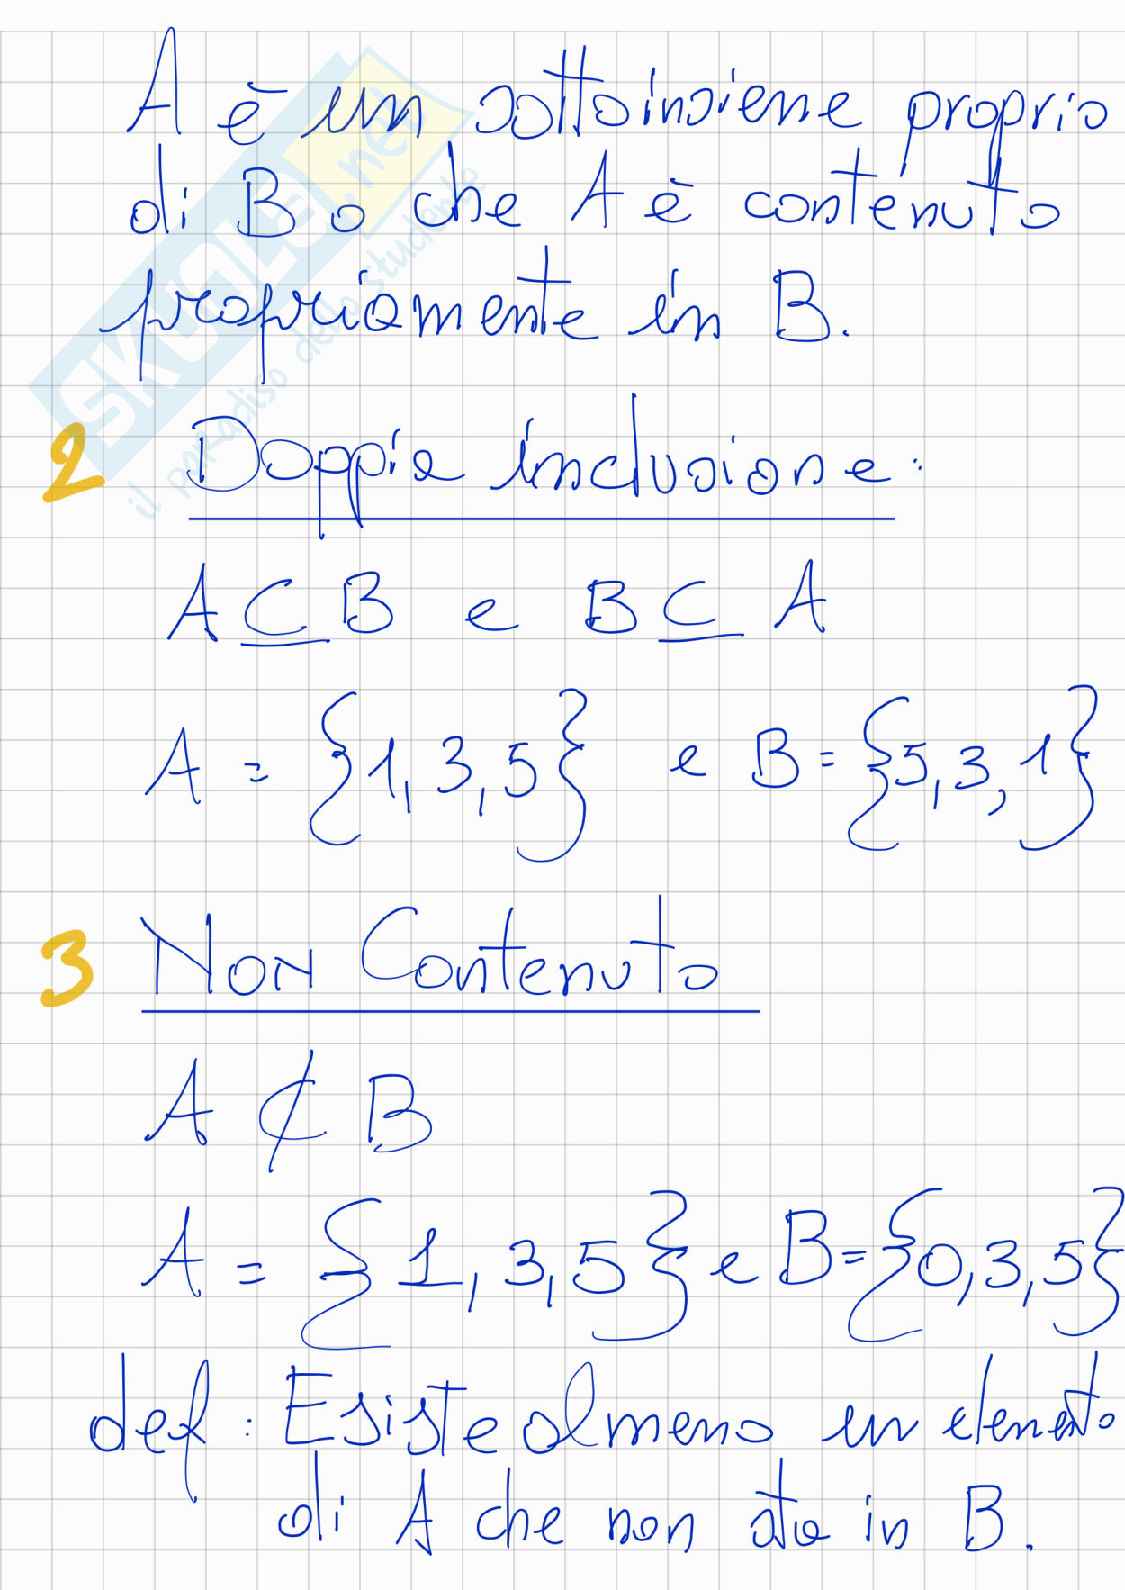 A è un sottoinsieme proprio
di B o che A è contenuto
propriamente in B.
2 Doppia inclusione:
A ⊆ B e B ⊆ A
A = {1, 3, 5} e B = {5, 3, 1}
3 Non Contenuto
A ⊄ B
A = {1, 3, 5} e B = {0, 3, 5}
def: Esiste almeno un elemento
di A che non sta in B.
SKUOLA.net
il paradiso dello studente